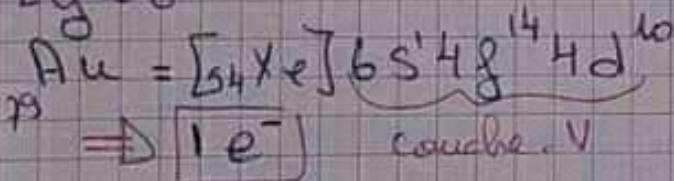 ₇₉Au = [₅₄Xe] 6s¹ 4f¹⁴ 4d¹⁰
⇒ 1 e⁻ couche. V